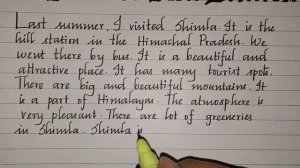 Last summer, I visited Shimla. It is the
hill station in the Himachal Pradesh. We
went there by bus. It is a beautiful and
attractive place. It has many tourist spots.
There are big and beautiful mountains. It
is a part of Himalayas. The atmosphere is
very pleasant. There are lot of greeneries
in Shimla. Shimla